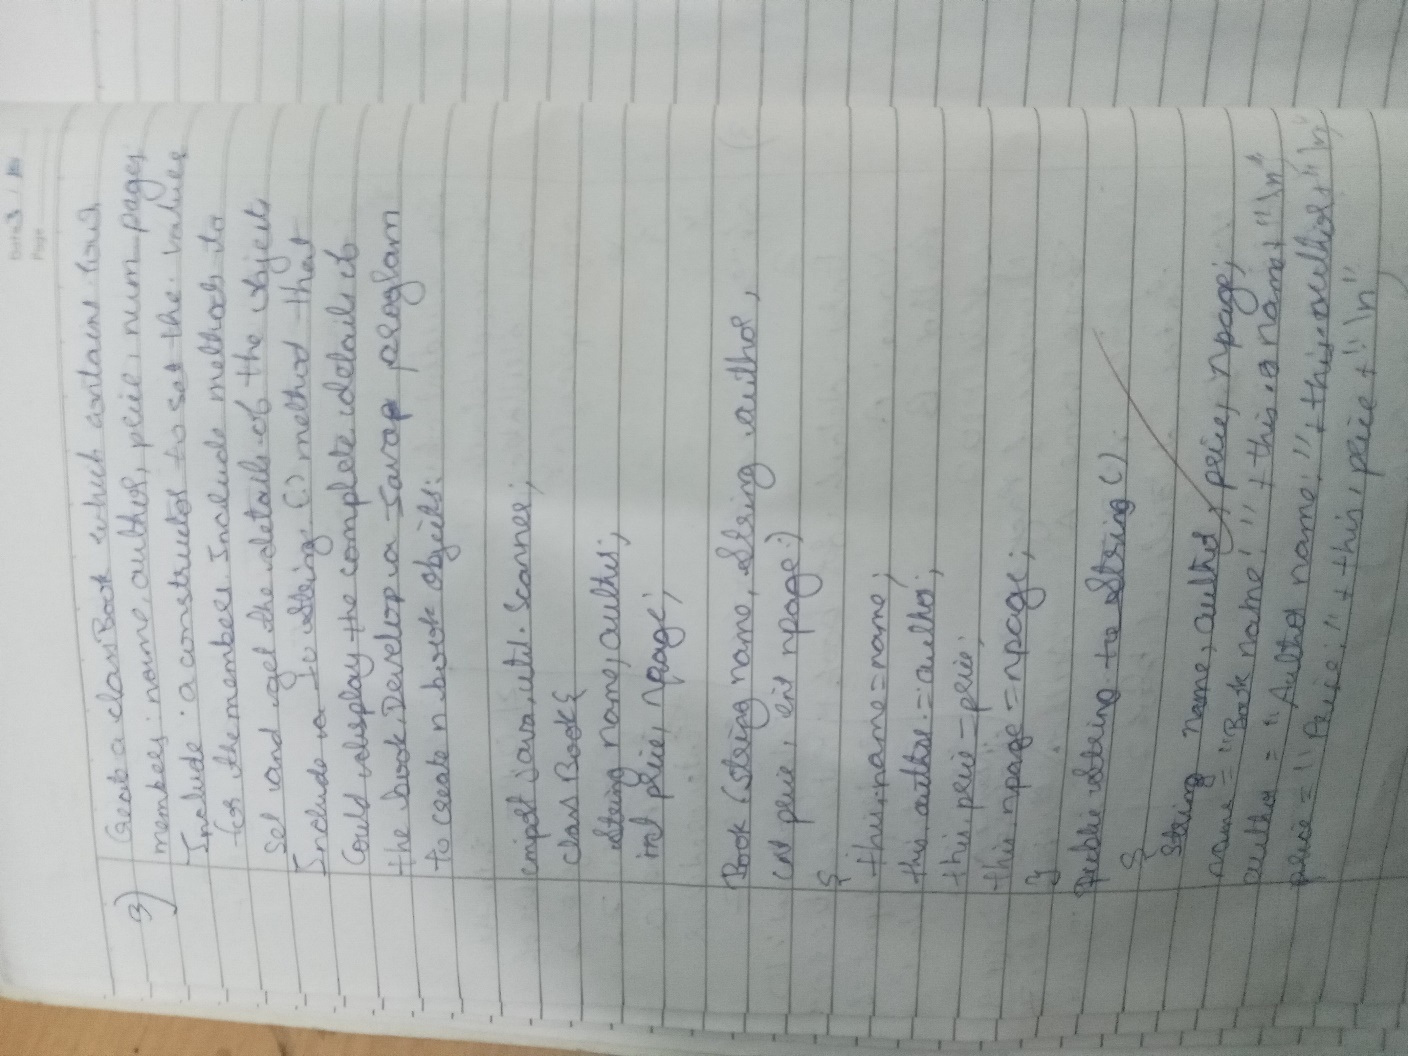 Date 3 /
Page
3) Create a class Book which contains four
members: name, author, price, num_pages.
Include a constructor to set the values
for the members. Include methods to
Set and get the details of the objects
Include a to String () method that
Could display the complete details of
the book. Develop a Java program
to create n book objects.
import java.util.Scanner;
class Book{
String name, author;
int price, npage;
Book (String name, String author,
int price, int npage)
{
this.name = name;
this.author = author;
this.price = price;
this.npage = npage;
}
public string to String ()
{
String name, author, price, npage;
name = "Book name:" + this.name + "\n"
author = "Author name:" + this.author + "\n"
price = "Price:" + this.price + "\n"